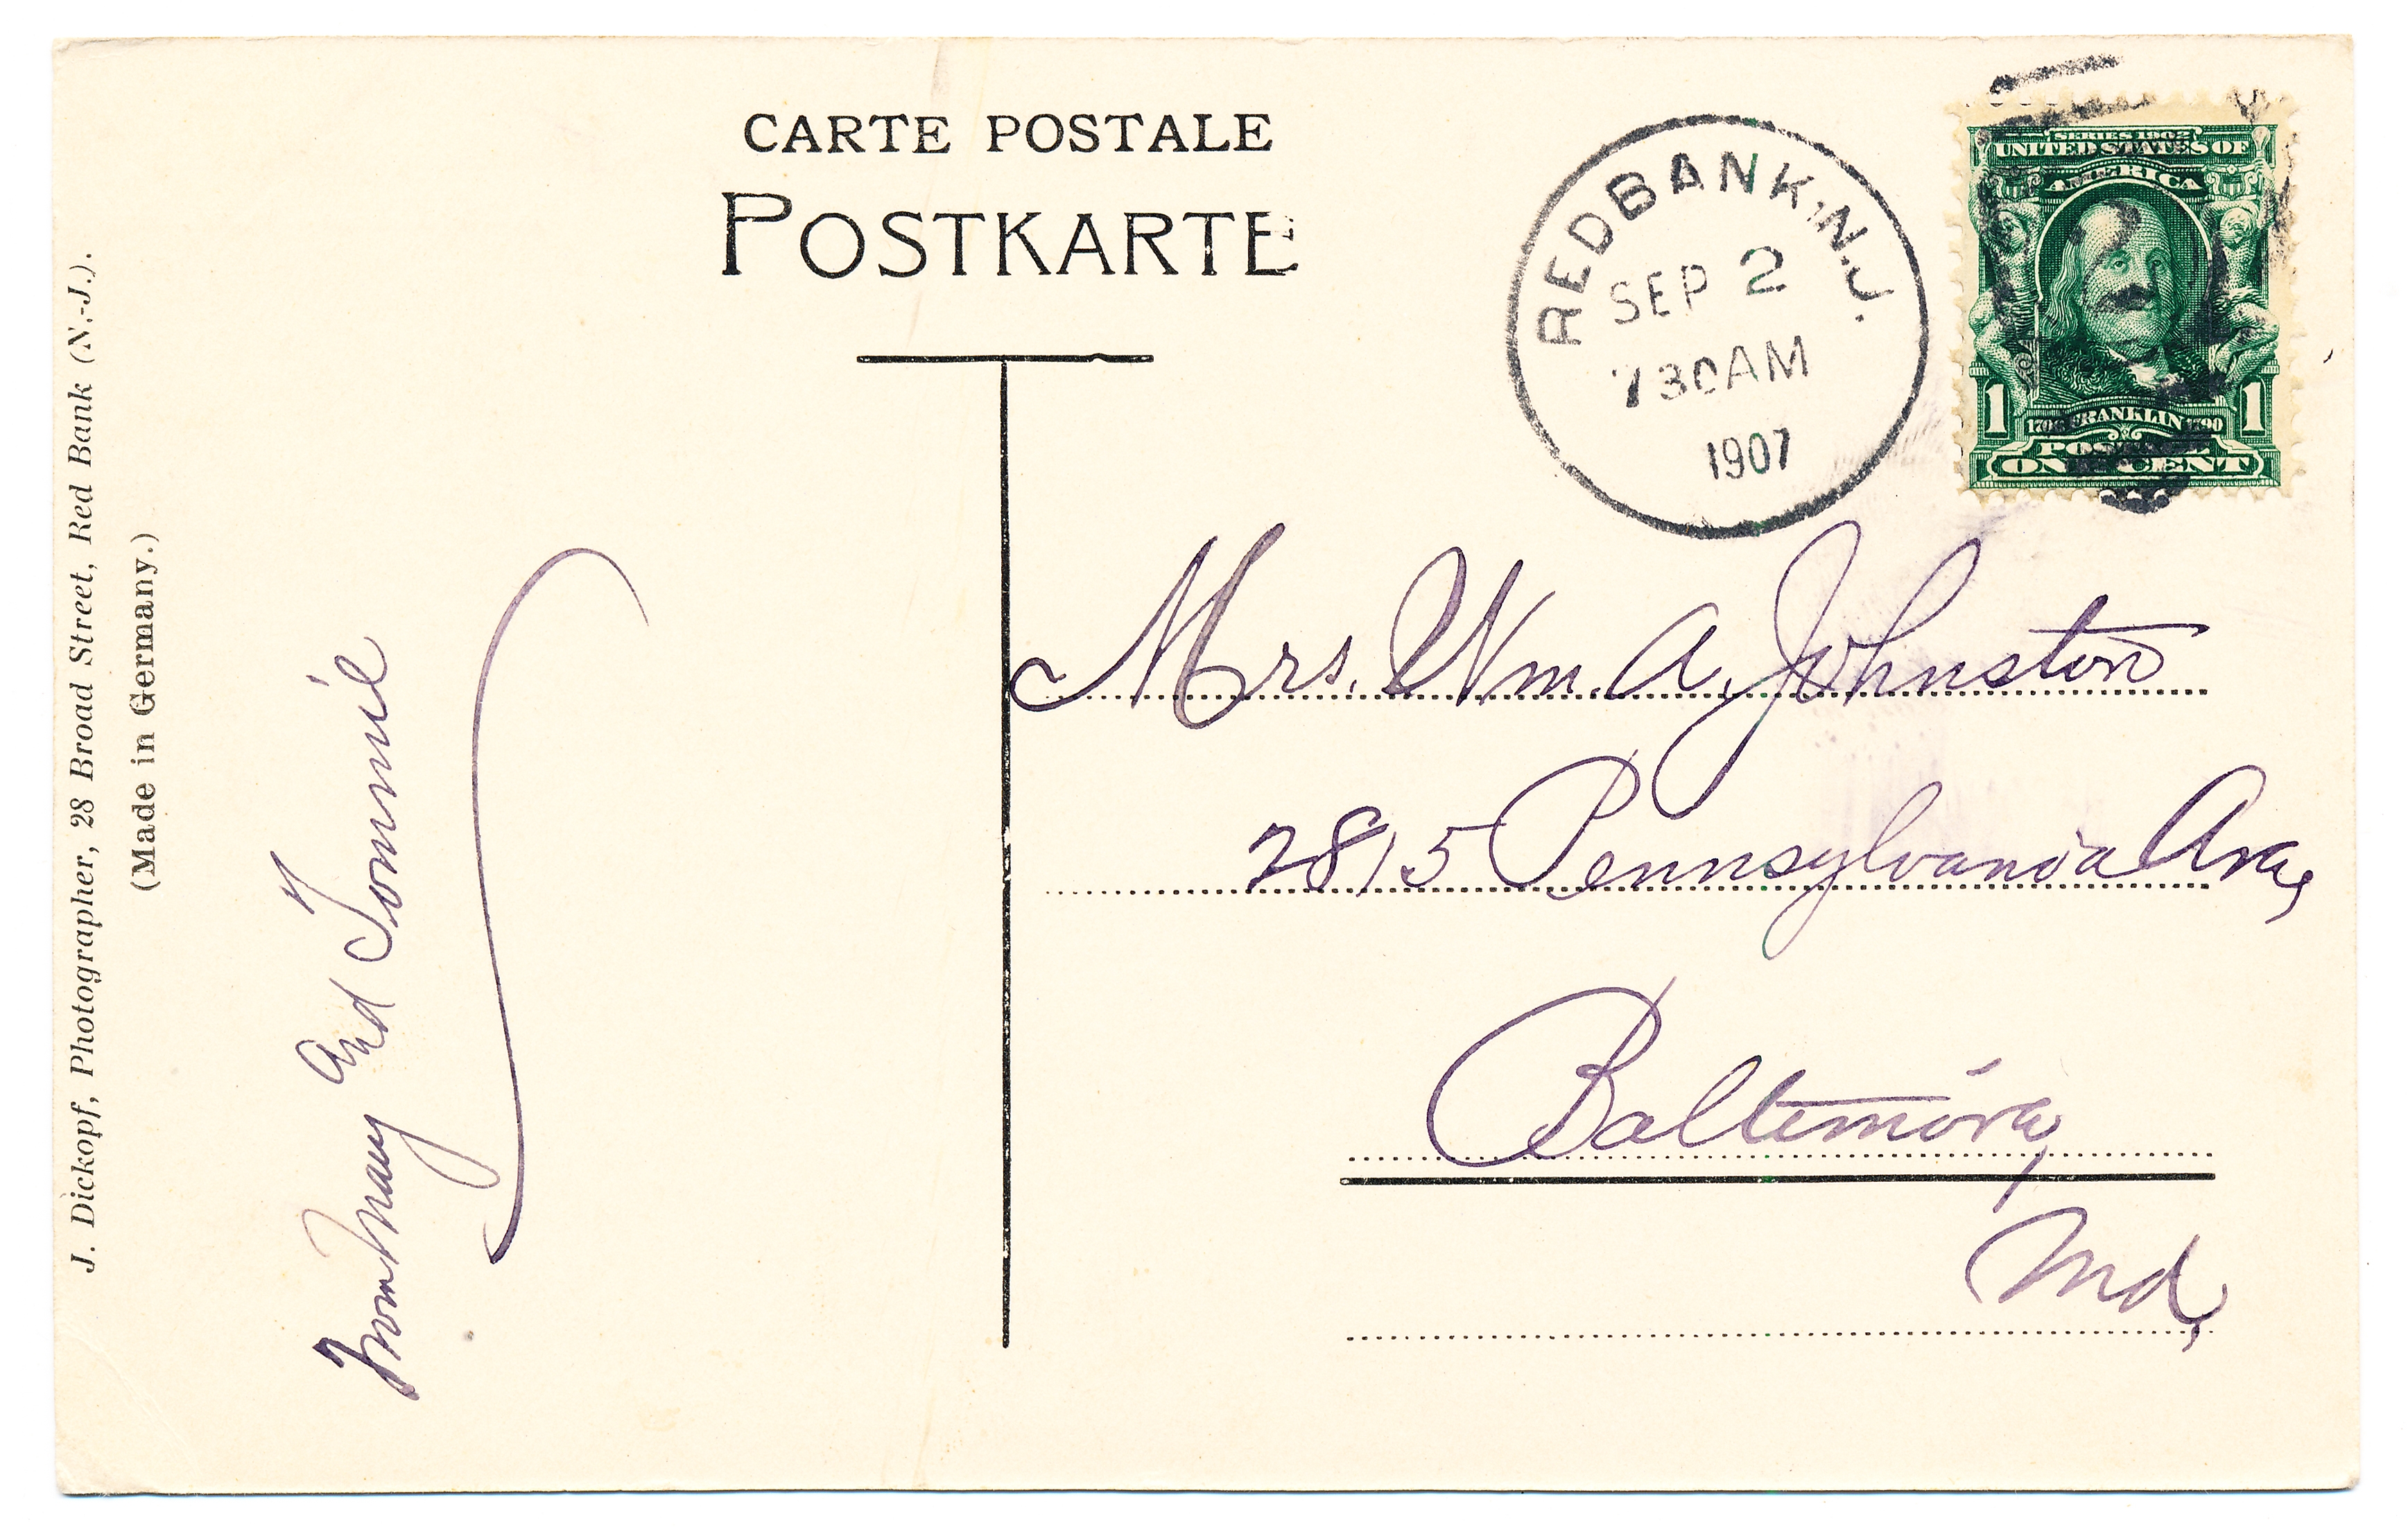 CARTE POSTALE
POSTKARTE
RED BANK, N.J.
SEP 2
730 AM
1907
SERIES 1902
UNITED STATES OF
AMERICA
1 1
1706 FRANKLIN 1790
POSTAGE
ONE CENT
J. Dickopf, Photographer, 28 Broad Street, Red Bank (N.-J.).
(Made in Germany.)
From Mary and Tommie
Mrs. Wm. A. Johnston
2815 Pennsylvania Ave,
Baltimore,
Md,